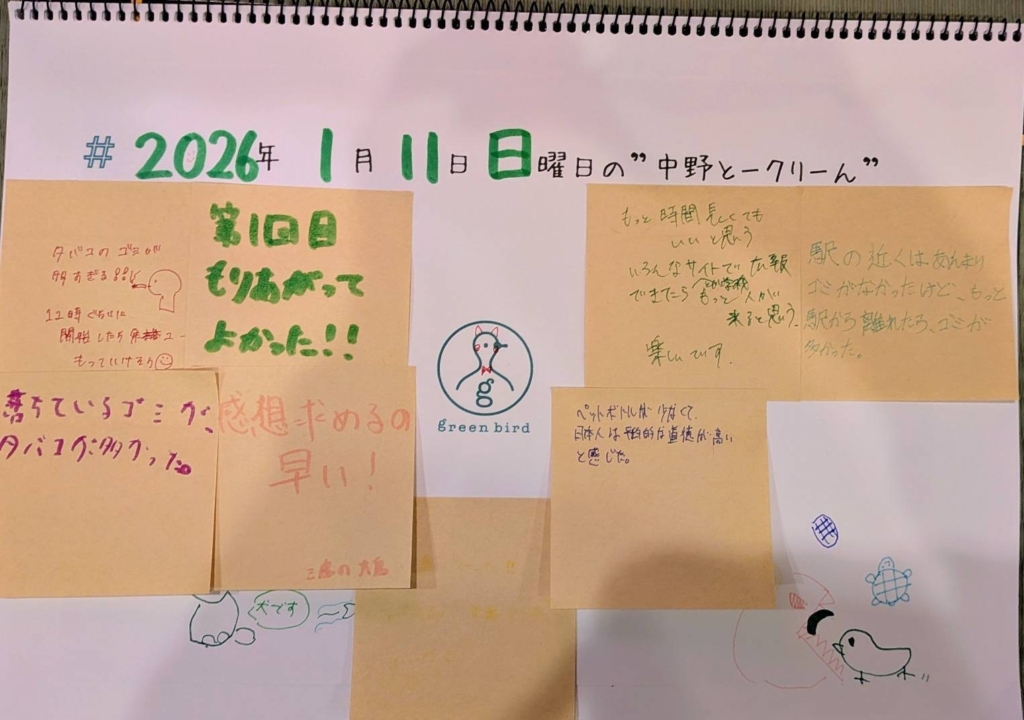 # 2026年 1月 11日 日曜日の”中野とークリーん”
タバコのゴミが
多すぎる
12時ぐらいに
開催したら
もっていけそう
第1回目
もりあがって
よかった!!
もっと時間長くても
いいと思う
いろんなサイトで広報
できたらもっと人が
来ると思う、
楽しいです.
駅の近くはあんまり
ゴミがなかったけど、もっと
駅から離れたら、ゴミが
多かった。
落ちているゴミが、
タバコが多かった。
感想求めるの
早い!
g
green bird
ペットボトルが少なくて、
日本人は道徳が高い
と感じた。
犬です